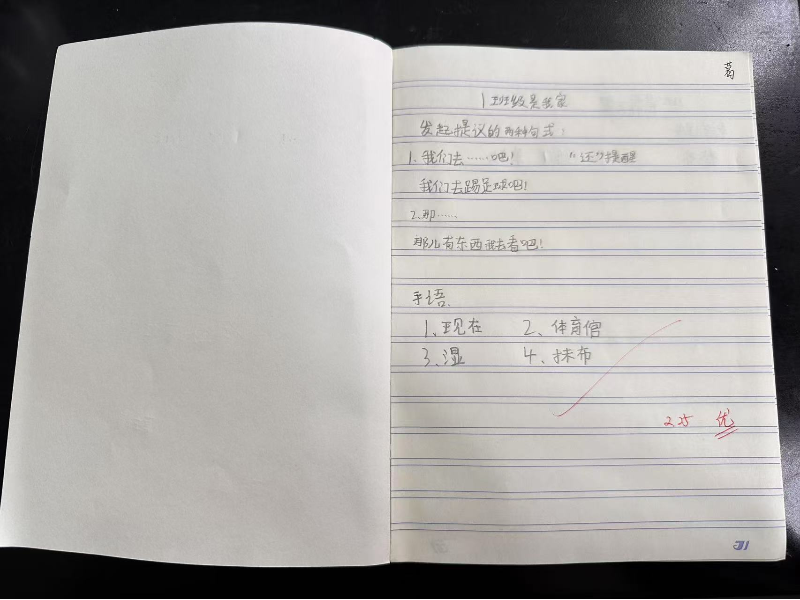 葛
1 班级是我家
发起提议的两种句式：
1. 我们去……吧！ “还”提醒
我们去踢足球吧！
2. 那……
那儿有东西我去看吧！
手语.
1、现在 2、体育馆
3、湿 4、抹布
2.25 优